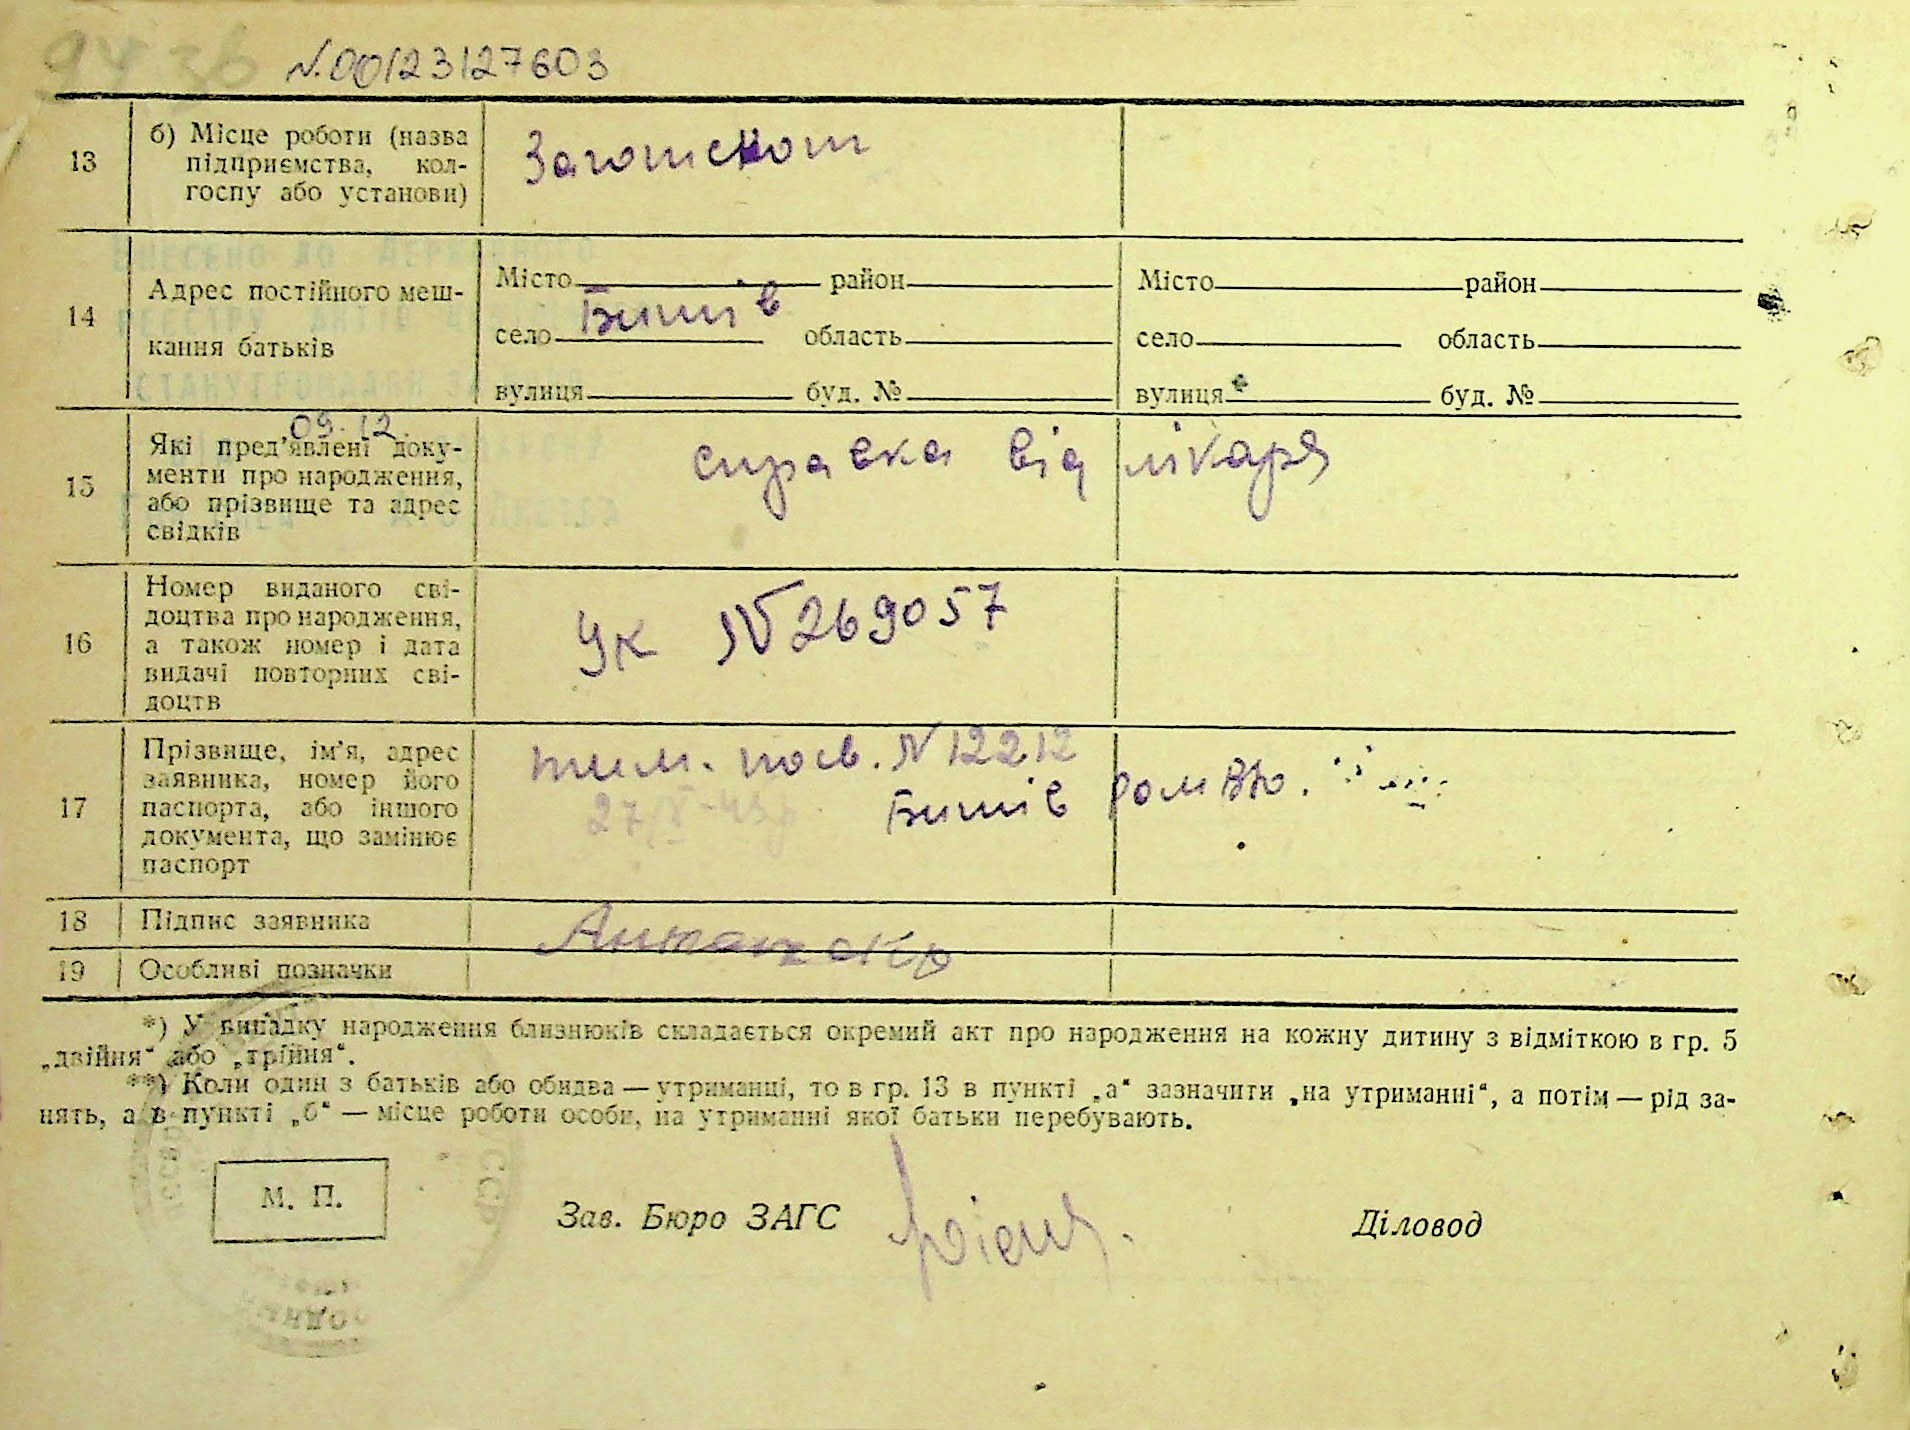 N.00123127603
13
б) Місце роботи (назва
підприємства, кол-
госпу або установи)
Заготскот
Внесено до Державного
14
Адрес постійного меш-
кання батьків
Місто район
село Бишів область
вулиця буд. №
Місто район
село область
вулиця буд. №
09.12.
15
Які пред'явлені доку-
менти про народження,
або прізвище та адрес
свідків
справка від лікаря
16
Номер виданого сві-
доцтва про народження,
а також номер і дата
видачі повторних сві-
доцтв
УК № 269057
17
Прізвище, ім'я, адрес
заявника, номер його
паспорта, або іншого
документа, що замінює
паспорт
тим. посв. N 12212
27/V-49р.
Бишів
18
Підпис заявника
19
Особливі позначки
*) У випадку народження близнюків складається окремий акт про народження на кожну дитину з відміткою в гр. 5
„двійня“ або „трійня“.
**) Коли один з батьків або обидва — утриманці, то в гр. 13 в пункті „а“ зазначити „на утриманні“, а потім — рід за-
нять, а в пункті „б“ — місце роботи особи, на утриманні якої батьки перебувають.
М. П.
Зав. Бюро ЗАГС
Діловод